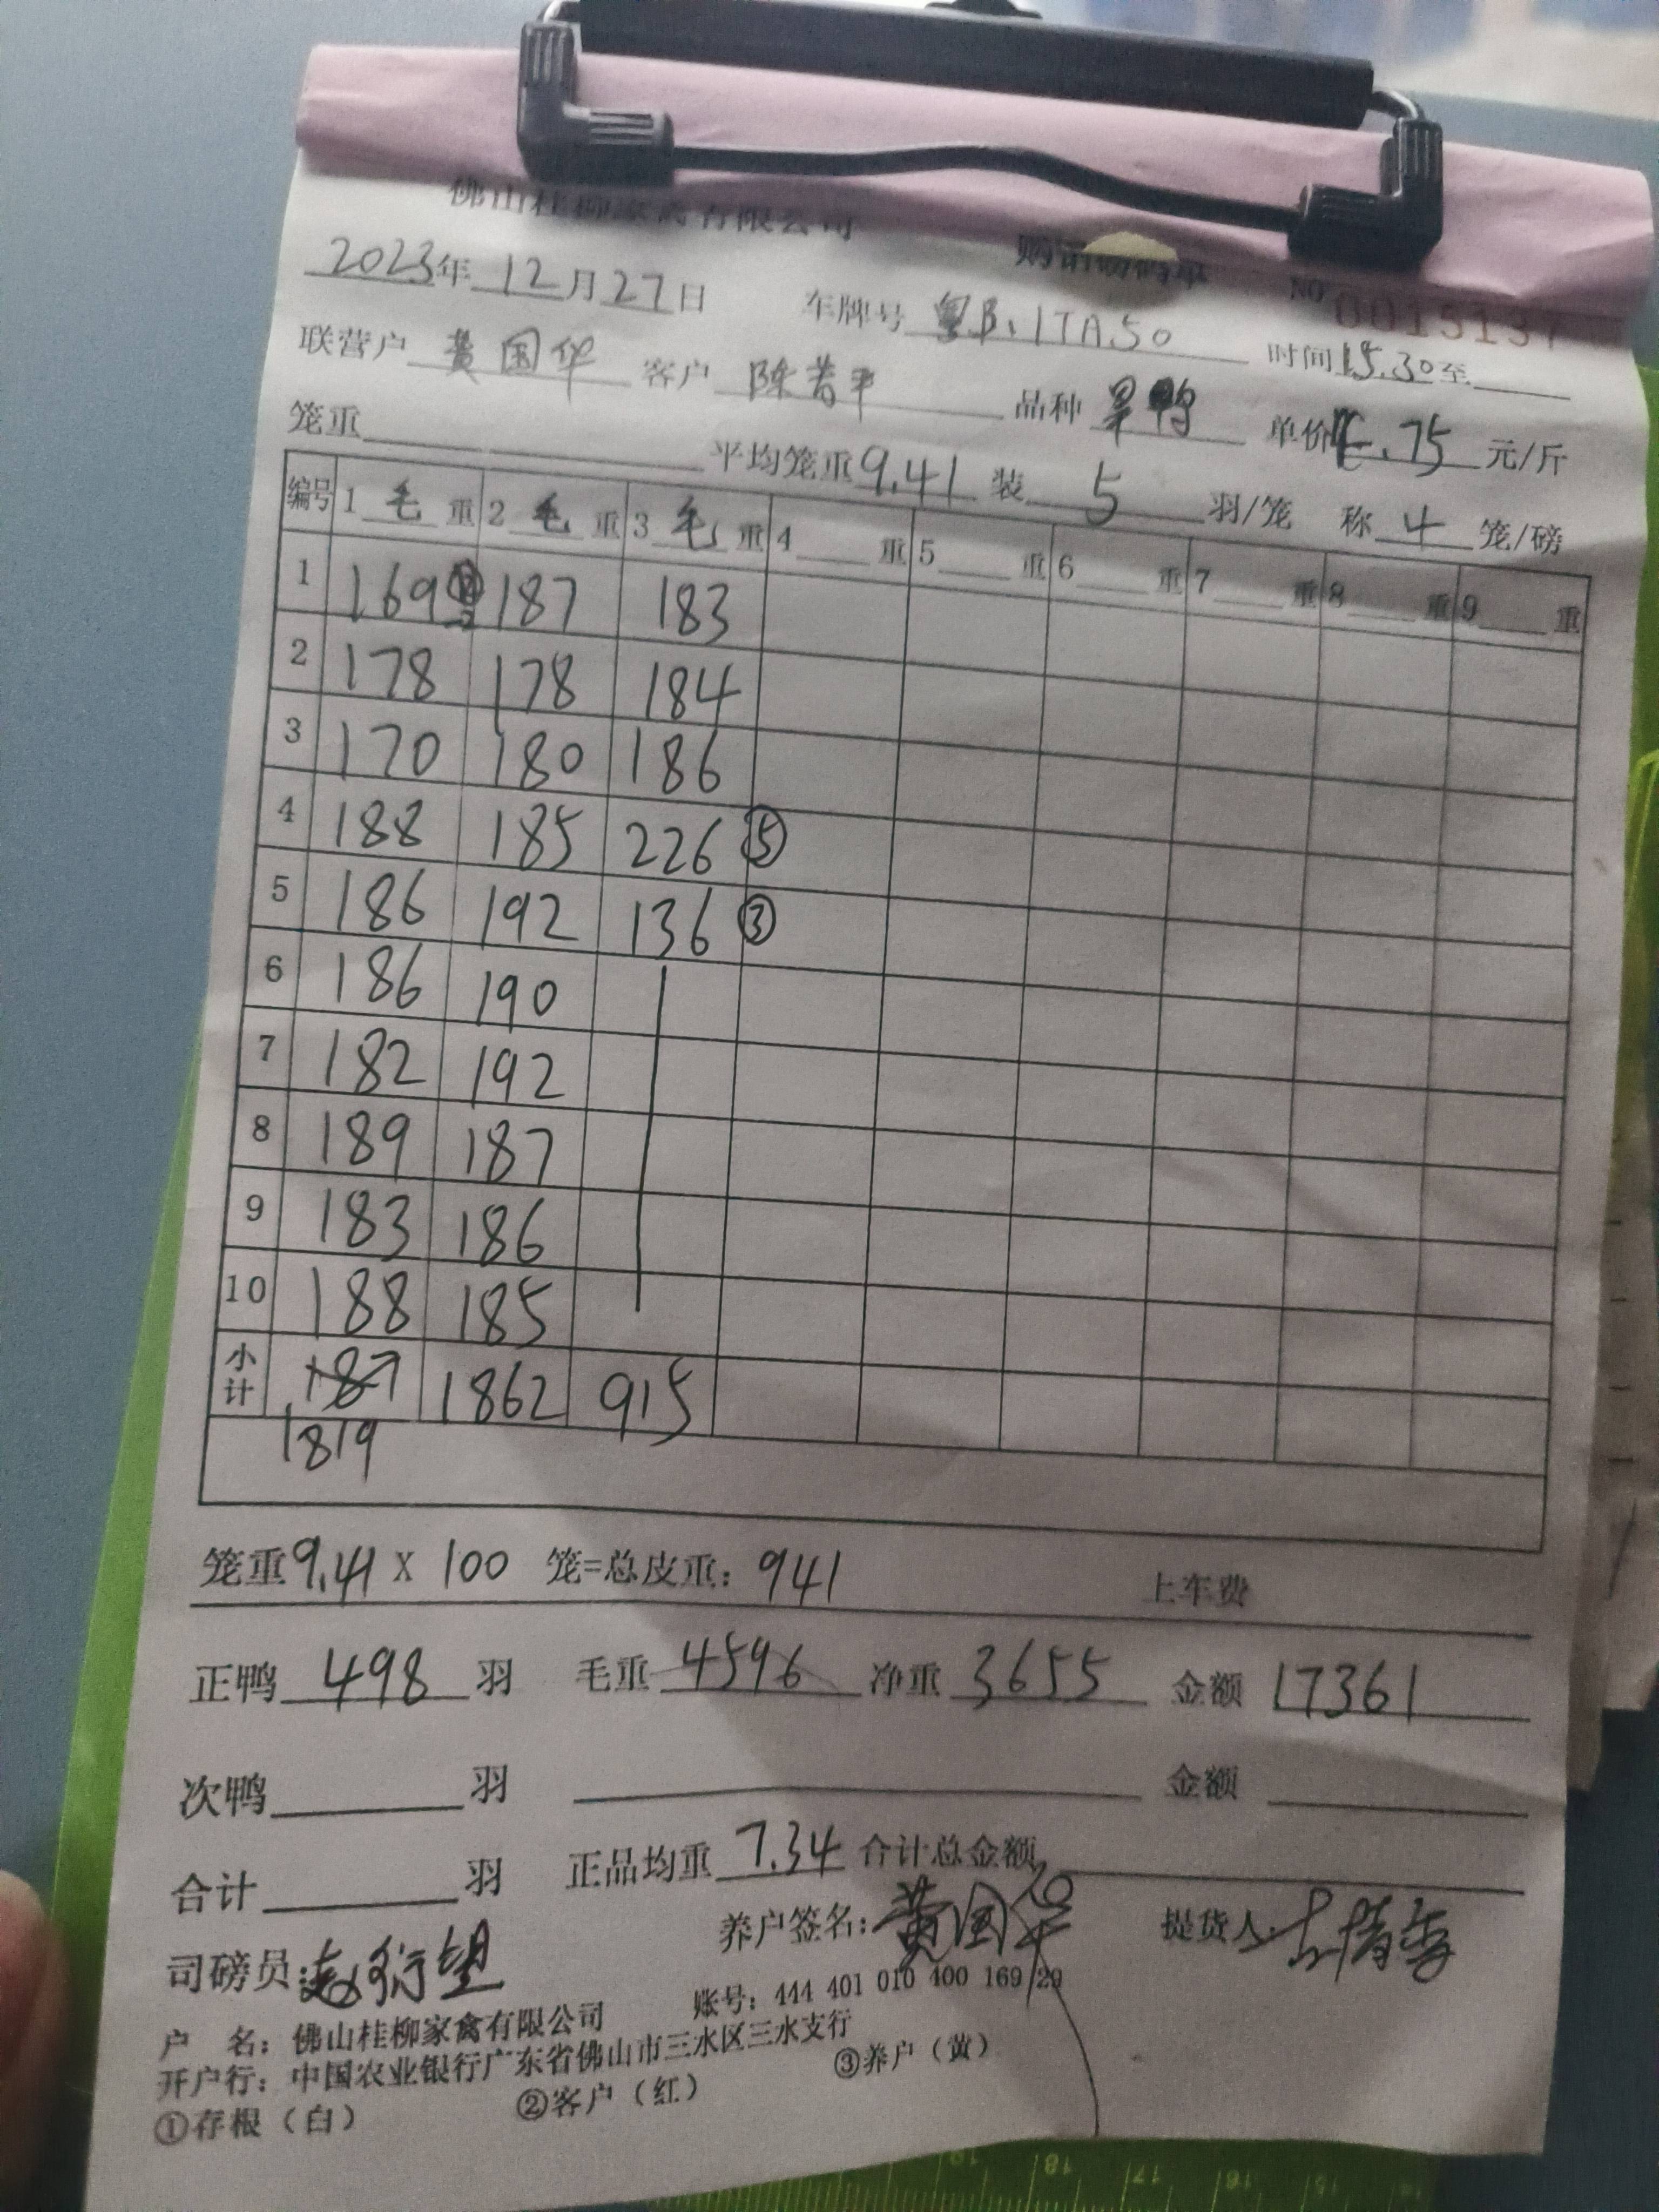 佛山桂柳家禽有限公司 购销磅码单 NO 0015137
2023年12月27日 车牌号 粤B.1TA50 时间15.30至
联营户 黄国华 客户 陈昔平 品种 旱鸭 单价4.75元/斤
笼重 平均笼重9.41 装5羽/笼 称4笼/磅
编号 1毛重 2毛重 3毛重 4重 5重 6重 7重 8重 9重
1 169 187 183
2 178 178 184
3 170 180 186
4 188 185 226 ⑤
5 186 192 136 ③
6 186 190
7 182 192
8 189 187
9 183 186
10 188 185
小计 187 1862 915
1819
笼重9.41 X 100 笼=总皮重：941 上车费
正鸭 498 羽 毛重 4596 净重 3655 金额 17361
次鸭 羽 金额
合计 羽 正品均重 7.34 合计总金额
司磅员： 养户签名：黄国华 提货人：
户 名：佛山桂柳家禽有限公司 账号：444 401 010 400 169 29
开户行：中国农业银行广东省佛山市三水区三水支行
①存根（白） ②客户（红） ③养户（黄）